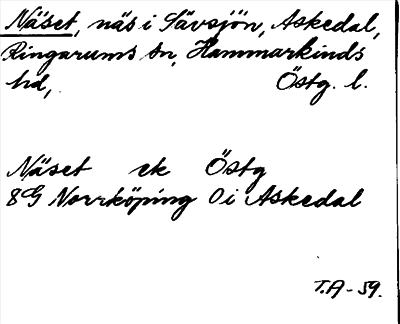 Näset, näs i Sävsjön, Askedal,
Ringarums sn, Hammarkinds
hd, Östg. l.
Näset ek Östg
8G Norrköping 0i Askedal
T.A-59.